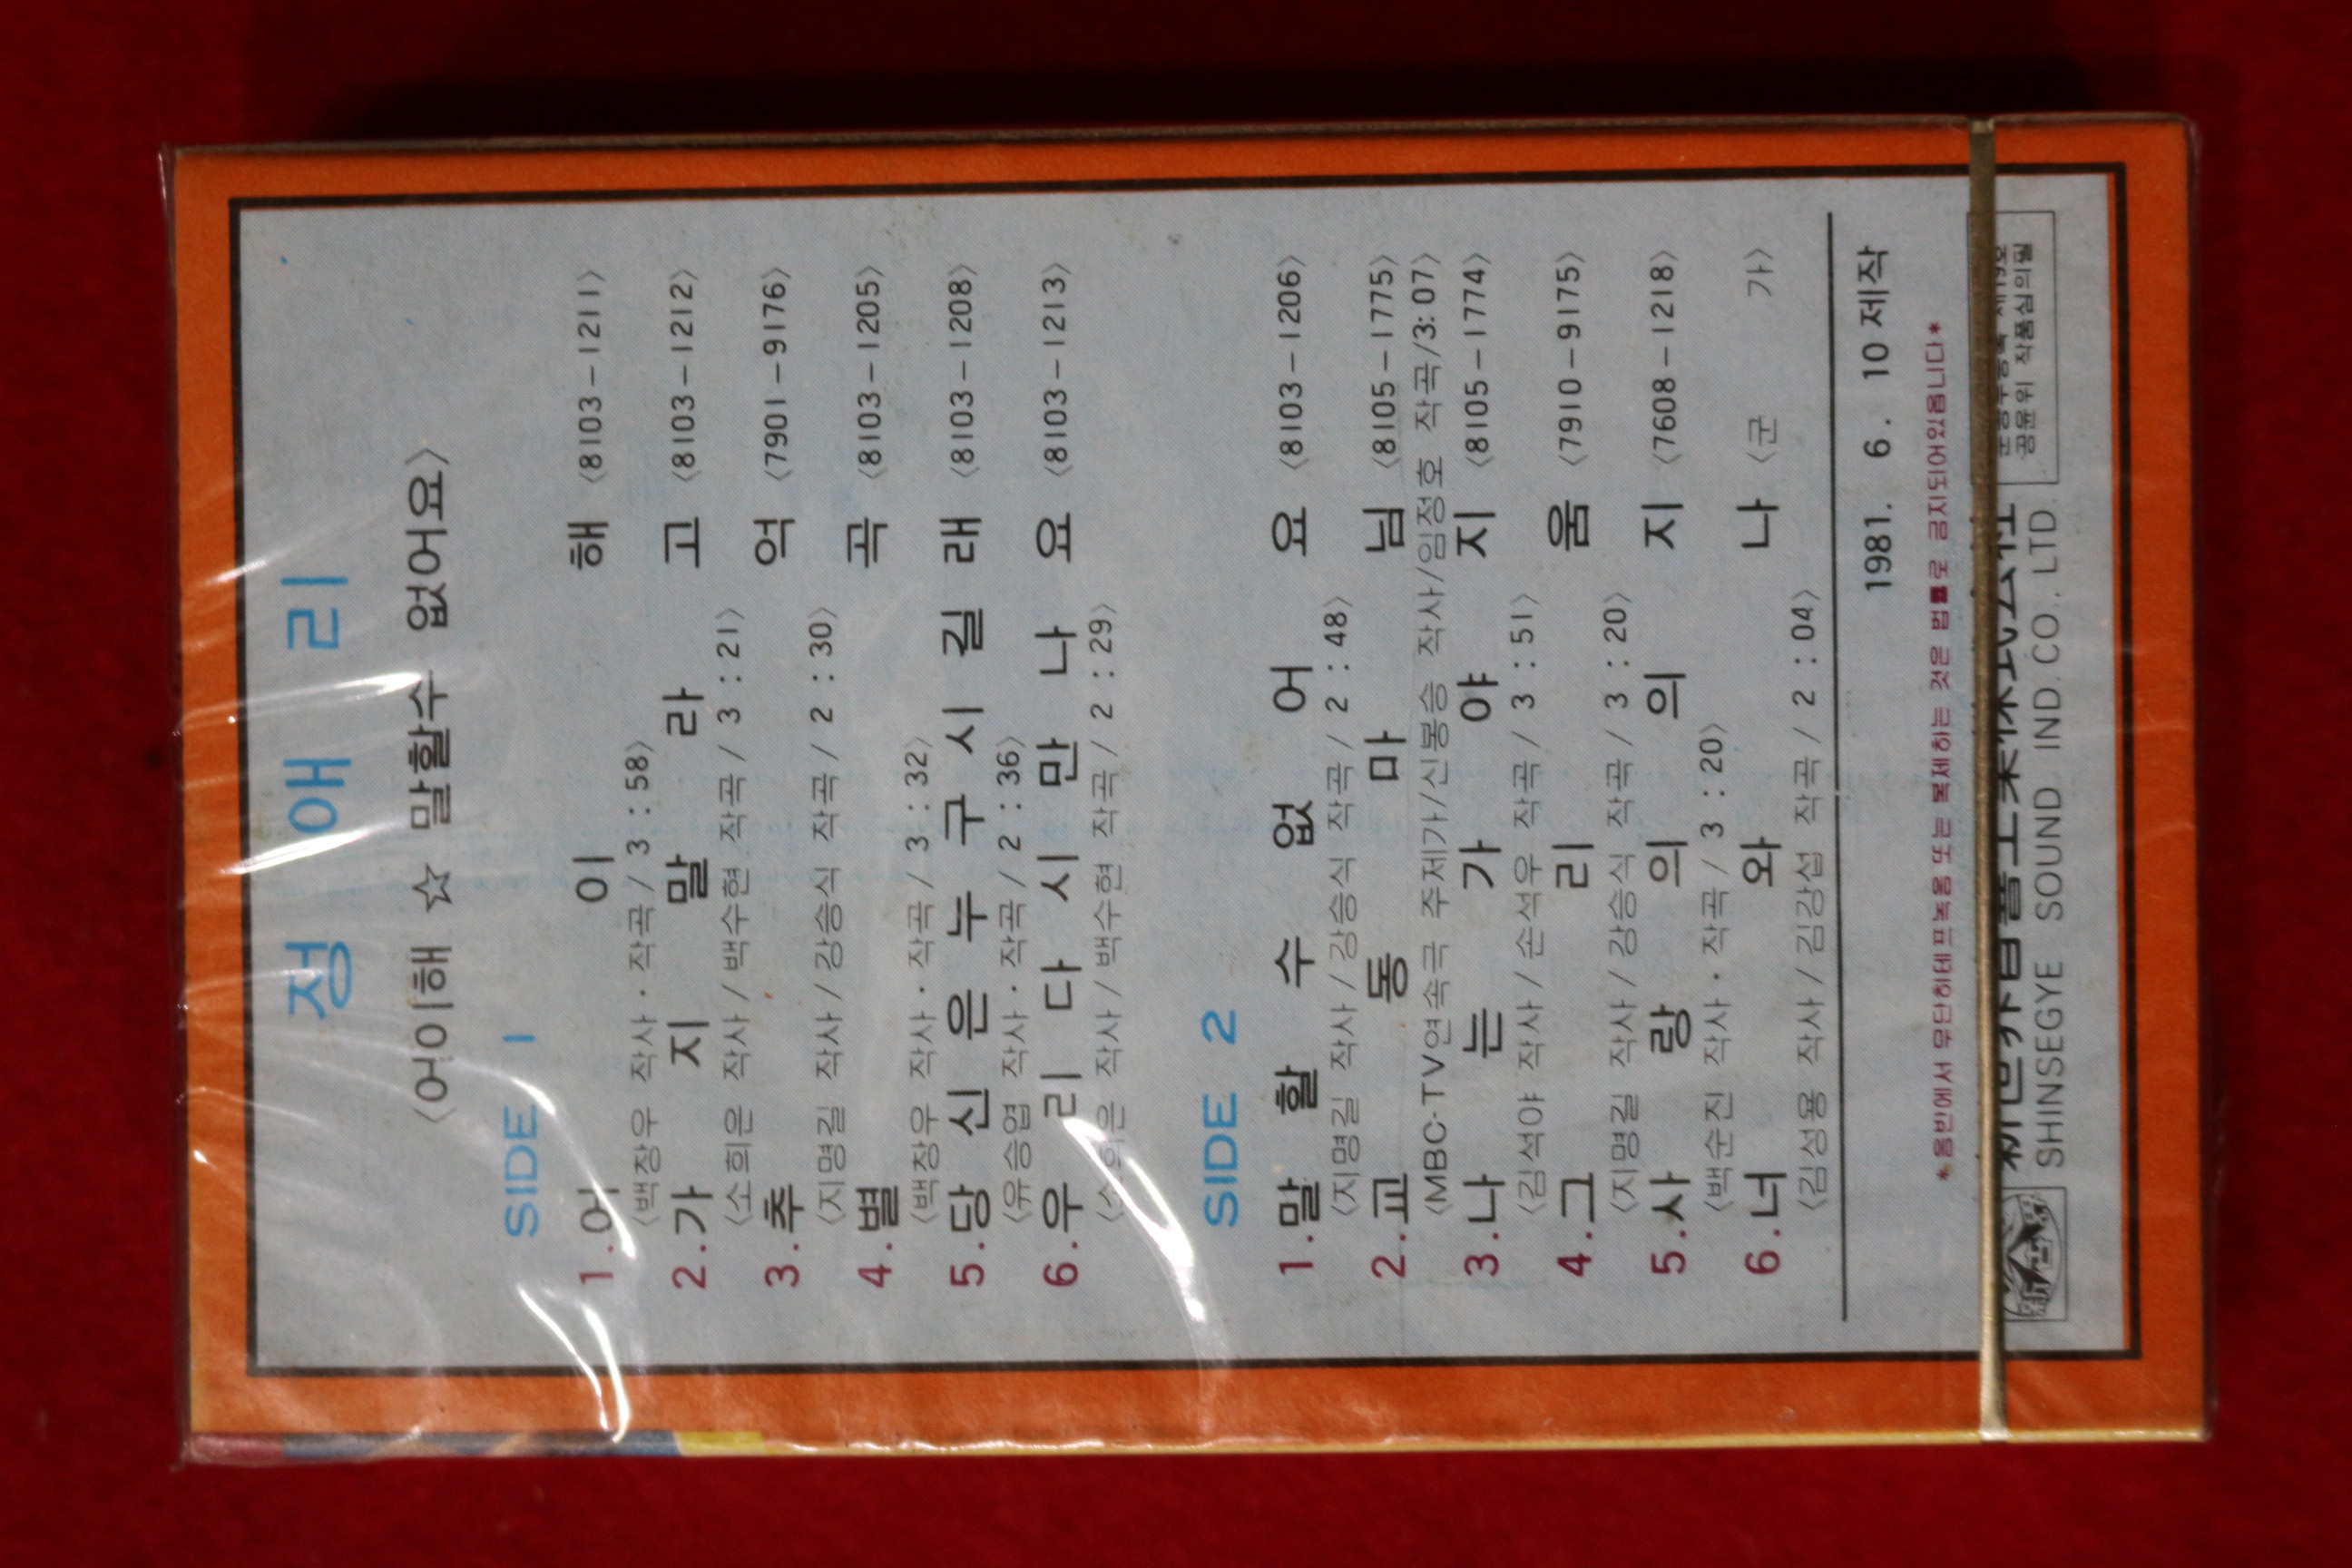 정애리
〈어이해 ☆ 말할수 없어요〉
SIDE 1
1. 어이해 〈8103-1211〉
〈백창우 작사·작곡/3:58〉
2. 가지말라고 〈8103-1212〉
〈소희은 작사/백수현 작곡/3:21〉
3. 추억 〈7901-9176〉
〈지명길 작사/강승식 작곡/2:30〉
4. 별곡 〈8103-1205〉
〈백창우 작사·작곡/3:32〉
5. 당신은누구시길래 〈8103-1208〉
〈유승엽 작사·작곡/2:36〉
6. 우리다시만나요 〈8103-1213〉
〈소희은 작사/백수현 작곡/2:29〉
SIDE 2
1. 말할수없어요 〈8103-1206〉
〈지명길 작사/강승식 작곡/2:48〉
2. 교동마님 〈8105-1775〉
〈MBC·TV연속극 주제가/신봉승 작사/임정호 작곡/3:07〉
3. 나는가야지 〈8105-1774〉
〈김석야 작사/손석우 작곡/3:51〉
4. 그리움 〈7910-9175〉
〈지명길 작사/강승식 작곡/3:20〉
5. 사랑의의지 〈7608-1218〉
〈백순진 작사·작곡/3:20〉
6. 너와나 〈군가〉
〈김성용 작사/김강섭 작곡/2:04〉
1981. 6. 10 제작
*음반에서 무단히테프녹음 또는 복제하는 것은 법률로 금지되어있읍니다*
新世界音響工業株式会社
SHINSEGYE SOUND IND. CO., LTD.
공윤위 작품심의필